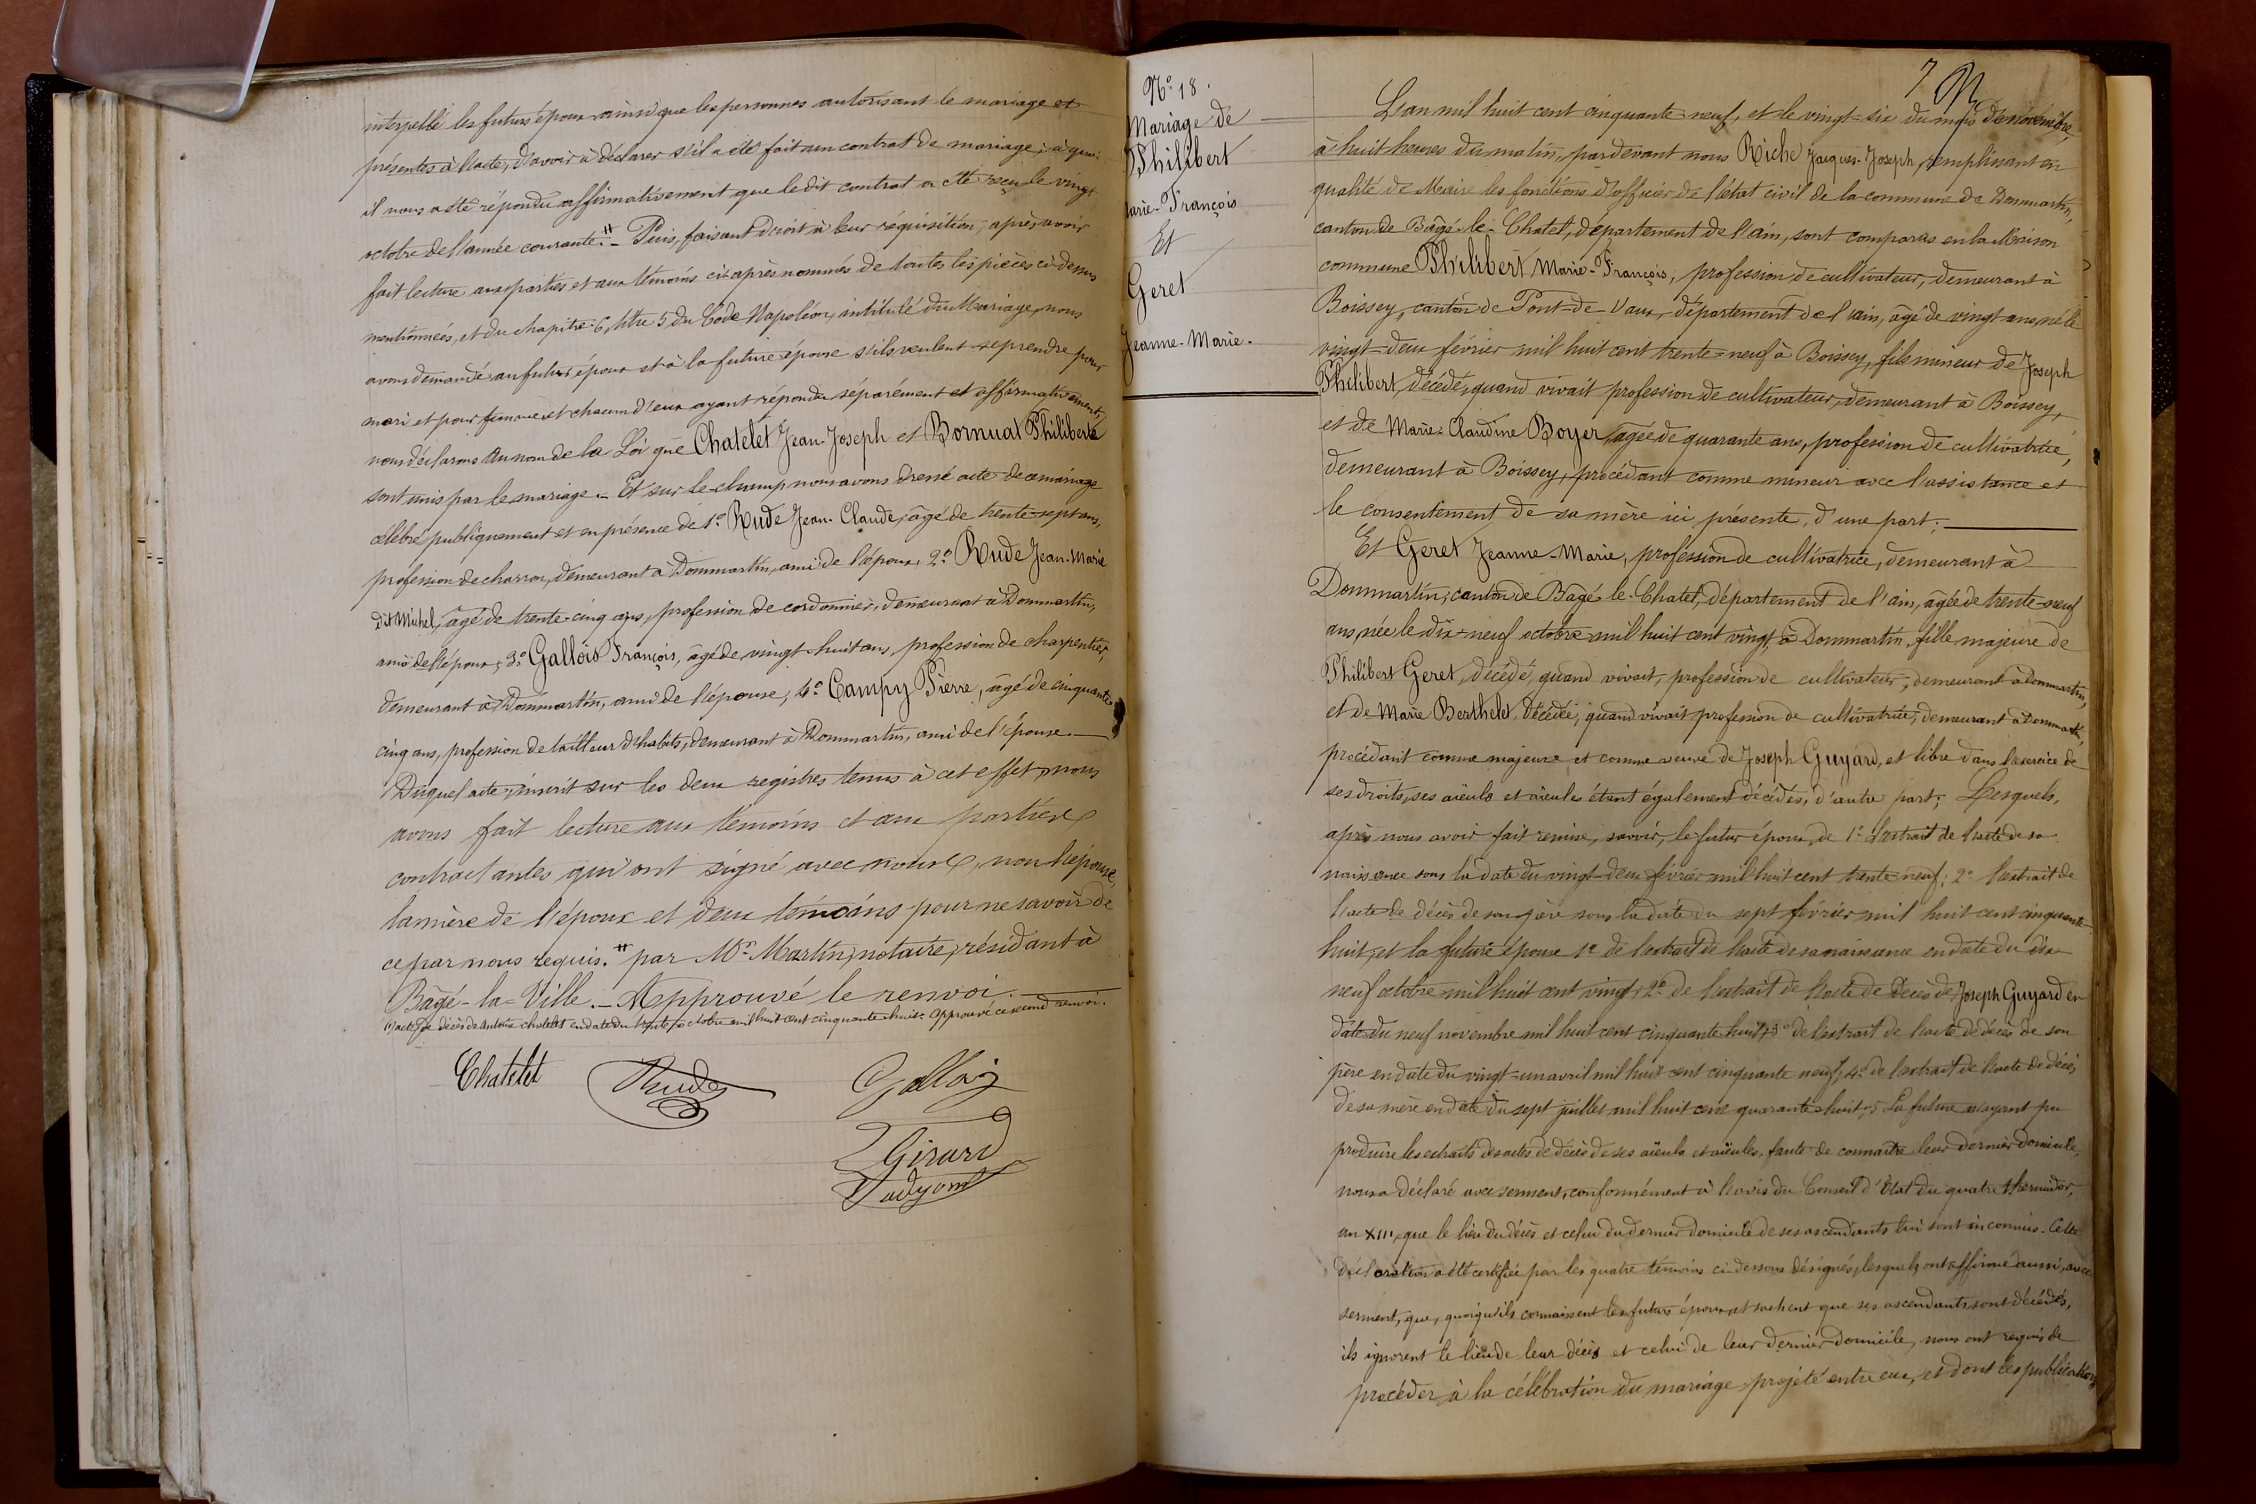 interpellé les futurs époux ainsi que les personnes autorisant le mariage et
présentes à l'acte, d'avoir à déclarer s'il a été fait un contrat de mariage; à quoi
il nous a été répondu affirmativement que ledit contrat a été reçu le vingt
octobre de l'année courante. # - Puis, faisant droit à leur réquisition, après avoir
fait lecture aux parties et aux témoins ci-après nommés de toutes les pièces ci-dessus
mentionnées, et du chapitre 6, titre 5 du Code Napoléon, intitulé du Mariage, nous
avons demandé au futur époux et à la future épouse s'ils veulent se prendre pour
mari et pour femme et chacun d'eux ayant répondu séparément et affirmativement,
nous déclarons au nom de la Loi que Chatelet Jean-Joseph et Bornuat Philiberte
sont unis par le mariage. - Et sur-le-champ nous avons dressé acte de ce mariage
célébré publiquement et en présence de 1° Rude Jean-Claude, âgé de trente-sept ans,
profession de charron, demeurant à Dommartin, ami de l'époux, 2° Rude Jean-Marie
dit Michel, âgé de trente-cinq ans, profession de cordonnier, demeurant à Dommartin,
ami de l'époux; 3° Gallois François, âgé de vingt-huit ans, profession de charpentier,
demeurant à Dommartin, ami de l'épouse; 4° Campy Pierre, âgé de cinquante
cinq ans, profession de tailleur d'habits, demeurant à Dommartin, ami de l'épouse.
Duquel acte, inscrit sur les deux registres tenus à cet effet, nous
avons fait lecture aux témoins et aux parties
contractantes qui ont signé avec nous, non l'épouse,
la mère de l'époux et deux témoins pour ne savoir de
ce par nous requis. # par Me Martin, notaire, résidant à
Bâgé-la-Ville. - Approuvé le renvoi.
l'acte de décès de Antoine Chatelet en date du octobre mil huit cent cinquante-huit. Approuvé ce second renvoi.
Chatelet Rude Gallois
Girard
N° 18.
Mariage de
Philibert
Marie-François
Et
Geret
Jeanne-Marie.
7
L'an mil huit cent cinquante-neuf, et le vingt-six du mois de novembre,
à huit heures du matin, pardevant nous Riche Jacques-Joseph, remplissant en
qualité de Maire les fonctions d'officier de l'état civil de la commune de Dommartin,
canton de Bâgé-le-Chatel, département de l'ain, sont comparus en la Maison
commune Philibert Marie-François, profession de cultivateur, demeurant à
Boissey, canton de Pont-de-Vaux, département de l'ain, âgé de vingt ans, né le
vingt-deux février mil huit cent trente-neuf à Boissey, fils mineur de Joseph
Philibert, décédé, quand vivait profession de cultivateur, demeurant à Boissey,
et de Marie-Claudine Boyer, âgée de quarante ans, profession de cultivatrice,
demeurant à Boissey, procédant comme mineur avec l'assistance et
le consentement de sa mère ici présente, d'une part;
Et Geret Jeanne-Marie, profession de cultivatrice, demeurant à
Dommartin, canton de Bâgé-le-Chatel, département de l'ain, âgée de trente-neuf
ans, née le dix-neuf octobre mil huit cent vingt, à Dommartin, fille majeure de
Philibert Geret, décédé, quand vivait, profession de cultivateur, demeurant à Dommartin,
et de Marie Berthelet, décédée, quand vivait profession de cultivatrice, demeurant à Dommartin,
procédant comme majeure et comme veuve de Joseph Guyard, et libre dans l'exercice de
ses droits, ses aïeuls et aïeules étant également décédés, d'autre part; Lesquels,
après nous avoir fait remise, savoir, le futur époux, de 1° l'extrait de l'acte de sa
naissance sous la date du vingt-deux février mil huit cent trente-neuf; 2° l'extrait de
l'acte de décès de son père sous la date du sept février mil huit cent cinquante-
huit, et la future épouse 1° de l'extrait de l'acte de sa naissance en date du dix
neuf octobre mil huit cent vingt, 2° de l'extrait de l'acte de décès de Joseph Guyard en
date du neuf novembre mil huit cent cinquante-huit, 3° de l'extrait de l'acte de décès de son
père en date du vingt-un avril mil huit cent cinquante neuf, 4° de l'extrait de l'acte de décès
de sa mère en date du sept juillet mil huit cent quarante-huit; 5° La future n'ayant pu
produire les extraits des actes de décès de ses aïeuls et aïeules, faute de connaître leur dernier domicile,
nous a déclaré avec serment, conformément à l'avis du Conseil d'Etat du quatre thermidor,
an XIII, que le lieu du décès et celui du dernier domicile de ses ascendants lui sont inconnus. Cette
déclaration a été certifiée par les quatre témoins ci-dessous désignés, lesquels ont affirmé aussi, avec
serment, que, quoiqu'ils connaissent les futurs époux, et sachent que ses ascendants sont décédés,
ils ignorent le lieu de leur décès et celui de leur dernier domicile, nous ont requis de
procéder à la célébration du mariage projeté entre eux, et dont les publications